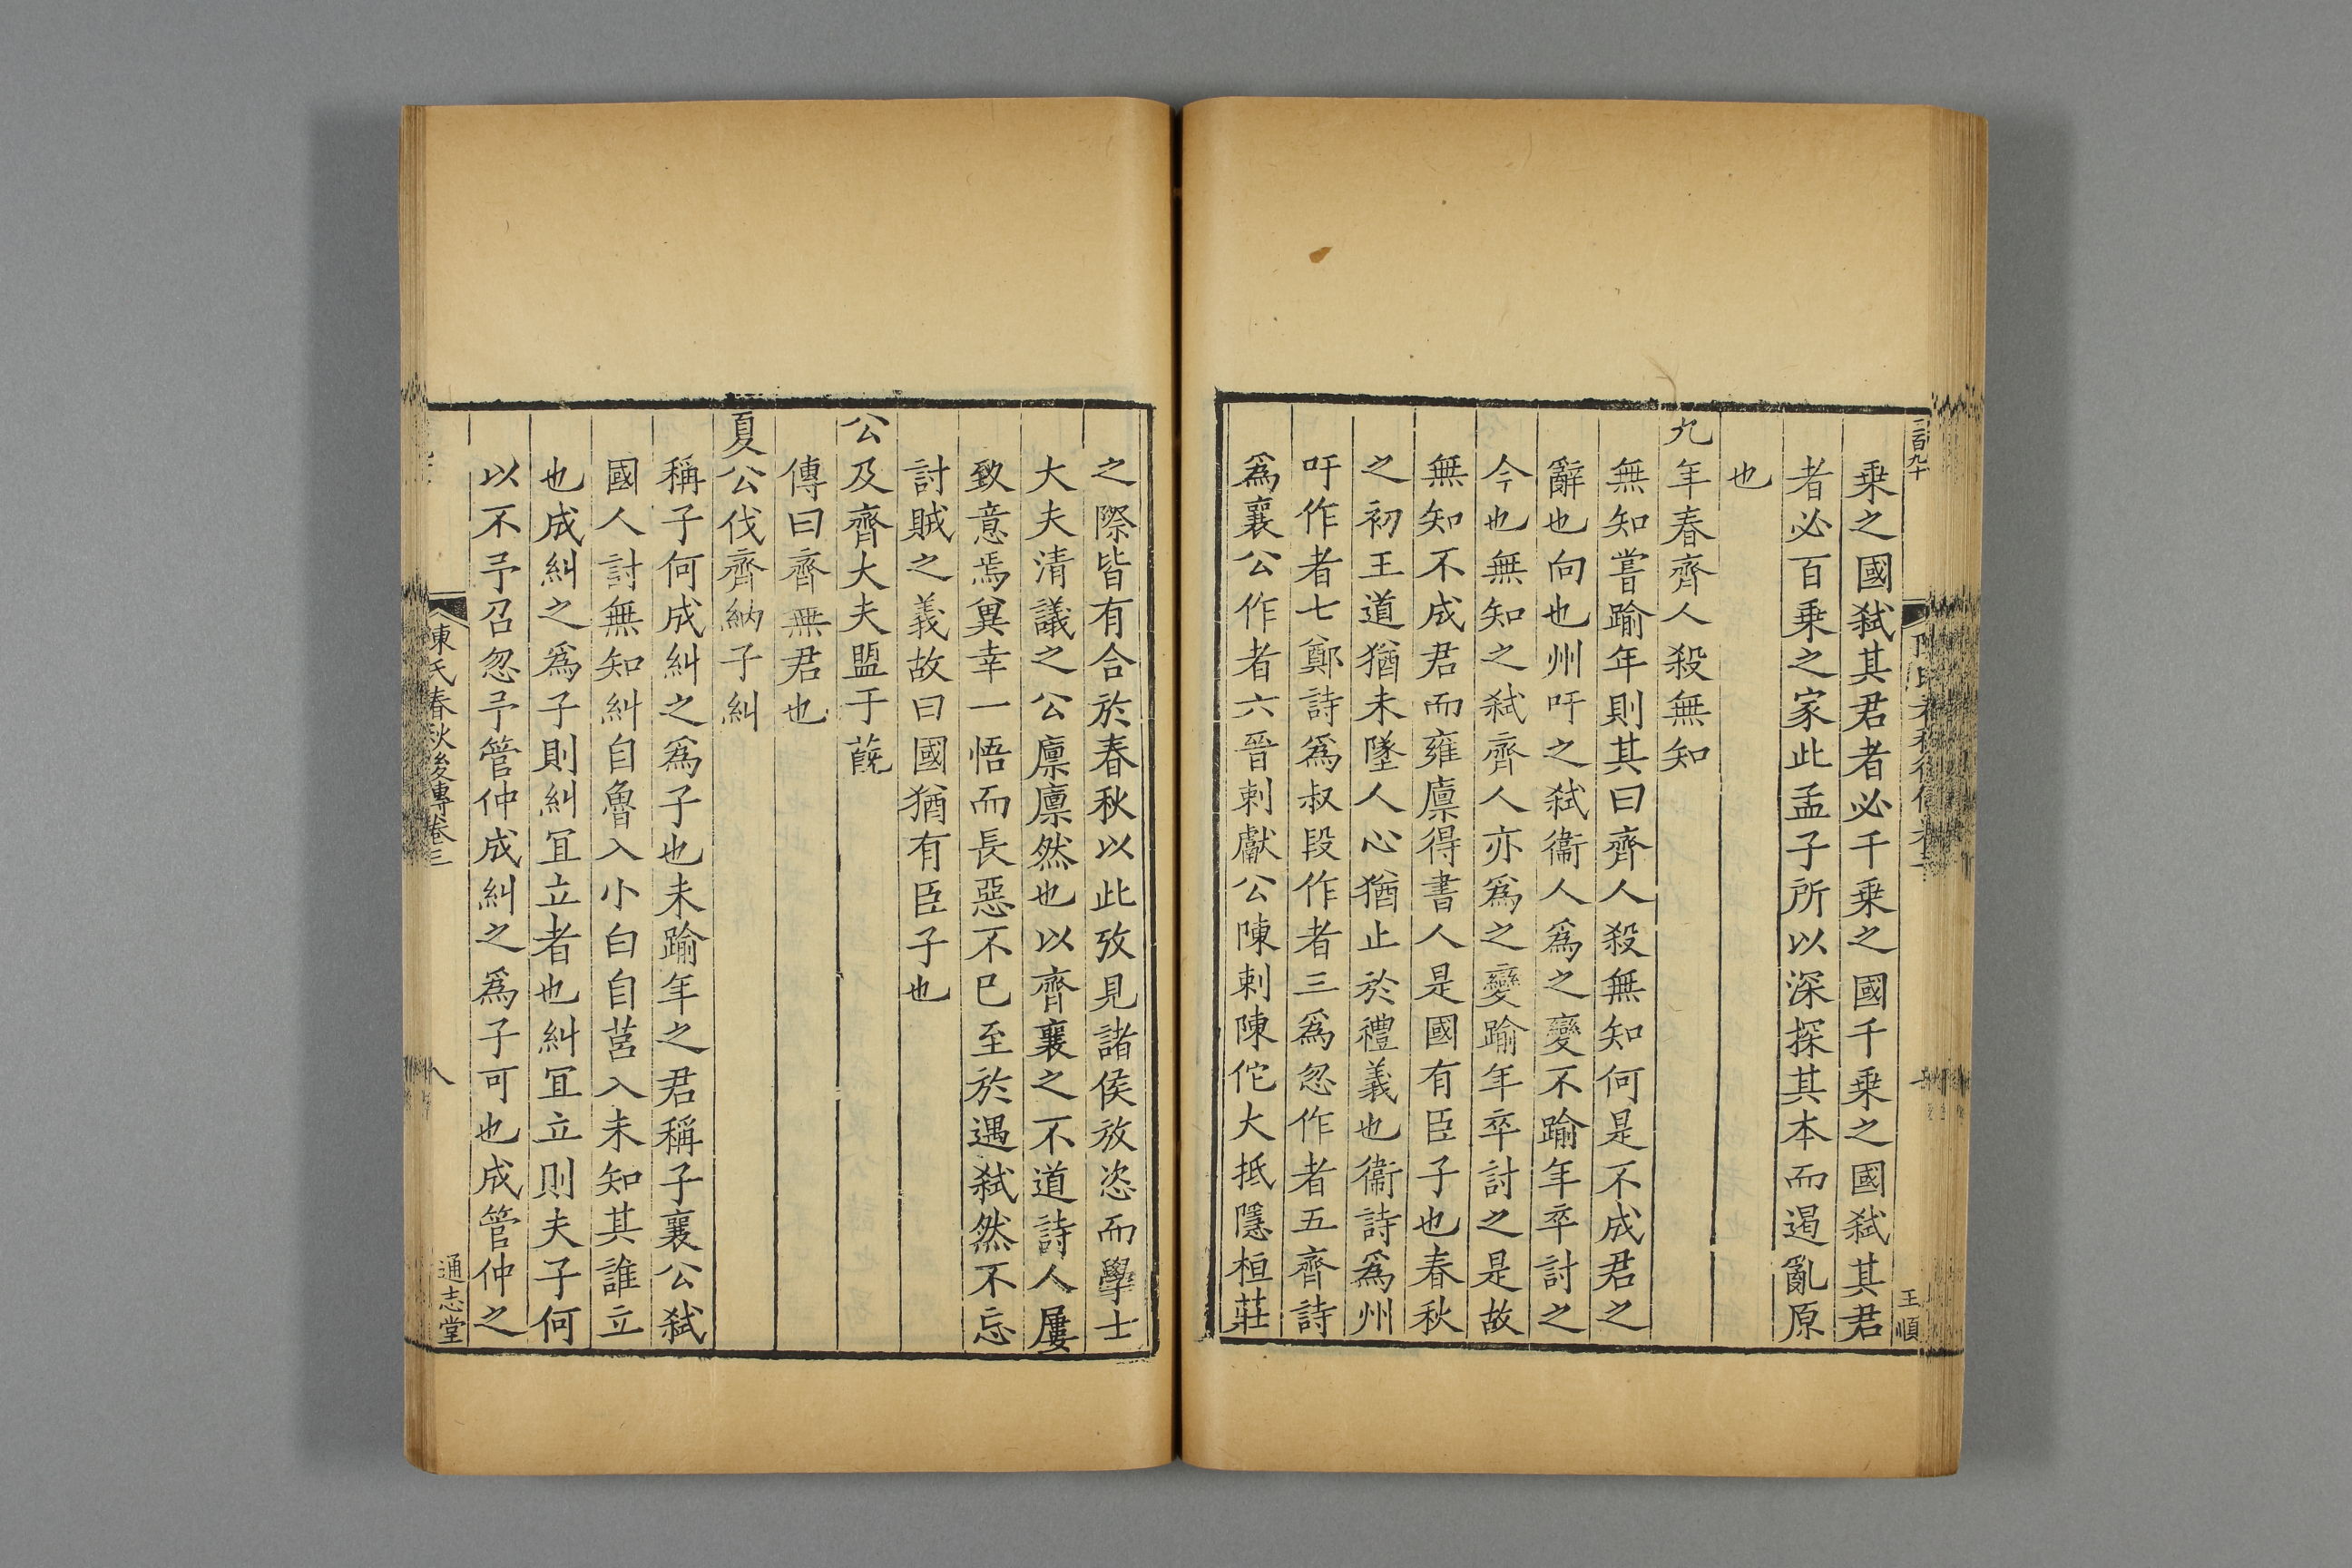 乗之國弑其君者必千乗之國千乗之國弑其君
者必百乗之家此孟子所以深探其本而遏亂原
也
九年春齊人殺無知
無知嘗踰年則其曰齊人殺無知何是不成君之
辭也向也州吁之弑衞人爲之變不踰年卒討之
今也無知之弑齊人亦爲之變踰年卒討之是故
無知不成君而雍廪得書人是國有臣子也春秋
之初王道猶未墜人心猶止於禮義也衞詩爲州
吁作者七鄭詩爲叔段作者三爲忽作者五齊詩
爲襄公作者六晉刺獻公陳刺陳佗大抵隱桓莊
王順
之際皆有合於春秋以此攷見諸侯放恣而學士
大夫清議之公廪廪然也以齊襄之不道詩人屢
致意焉冀幸一悟而長惡不已至於遇弑然不忘
討賊之義故曰國猶有臣子也
公及齊大夫盟于蔇
傳曰齊無君也
夏公伐齊納子糾
稱子何成糾之爲子也未踰年之君稱子襄公弑
國人討無知糾自魯入小白自莒入未知其誰立
也成糾之爲子則糾冝立者也糾冝立則夫子何
以不予召忽予管仲成糾之爲子可也成管仲之
陳氏春秋後傳卷三
八
通志堂